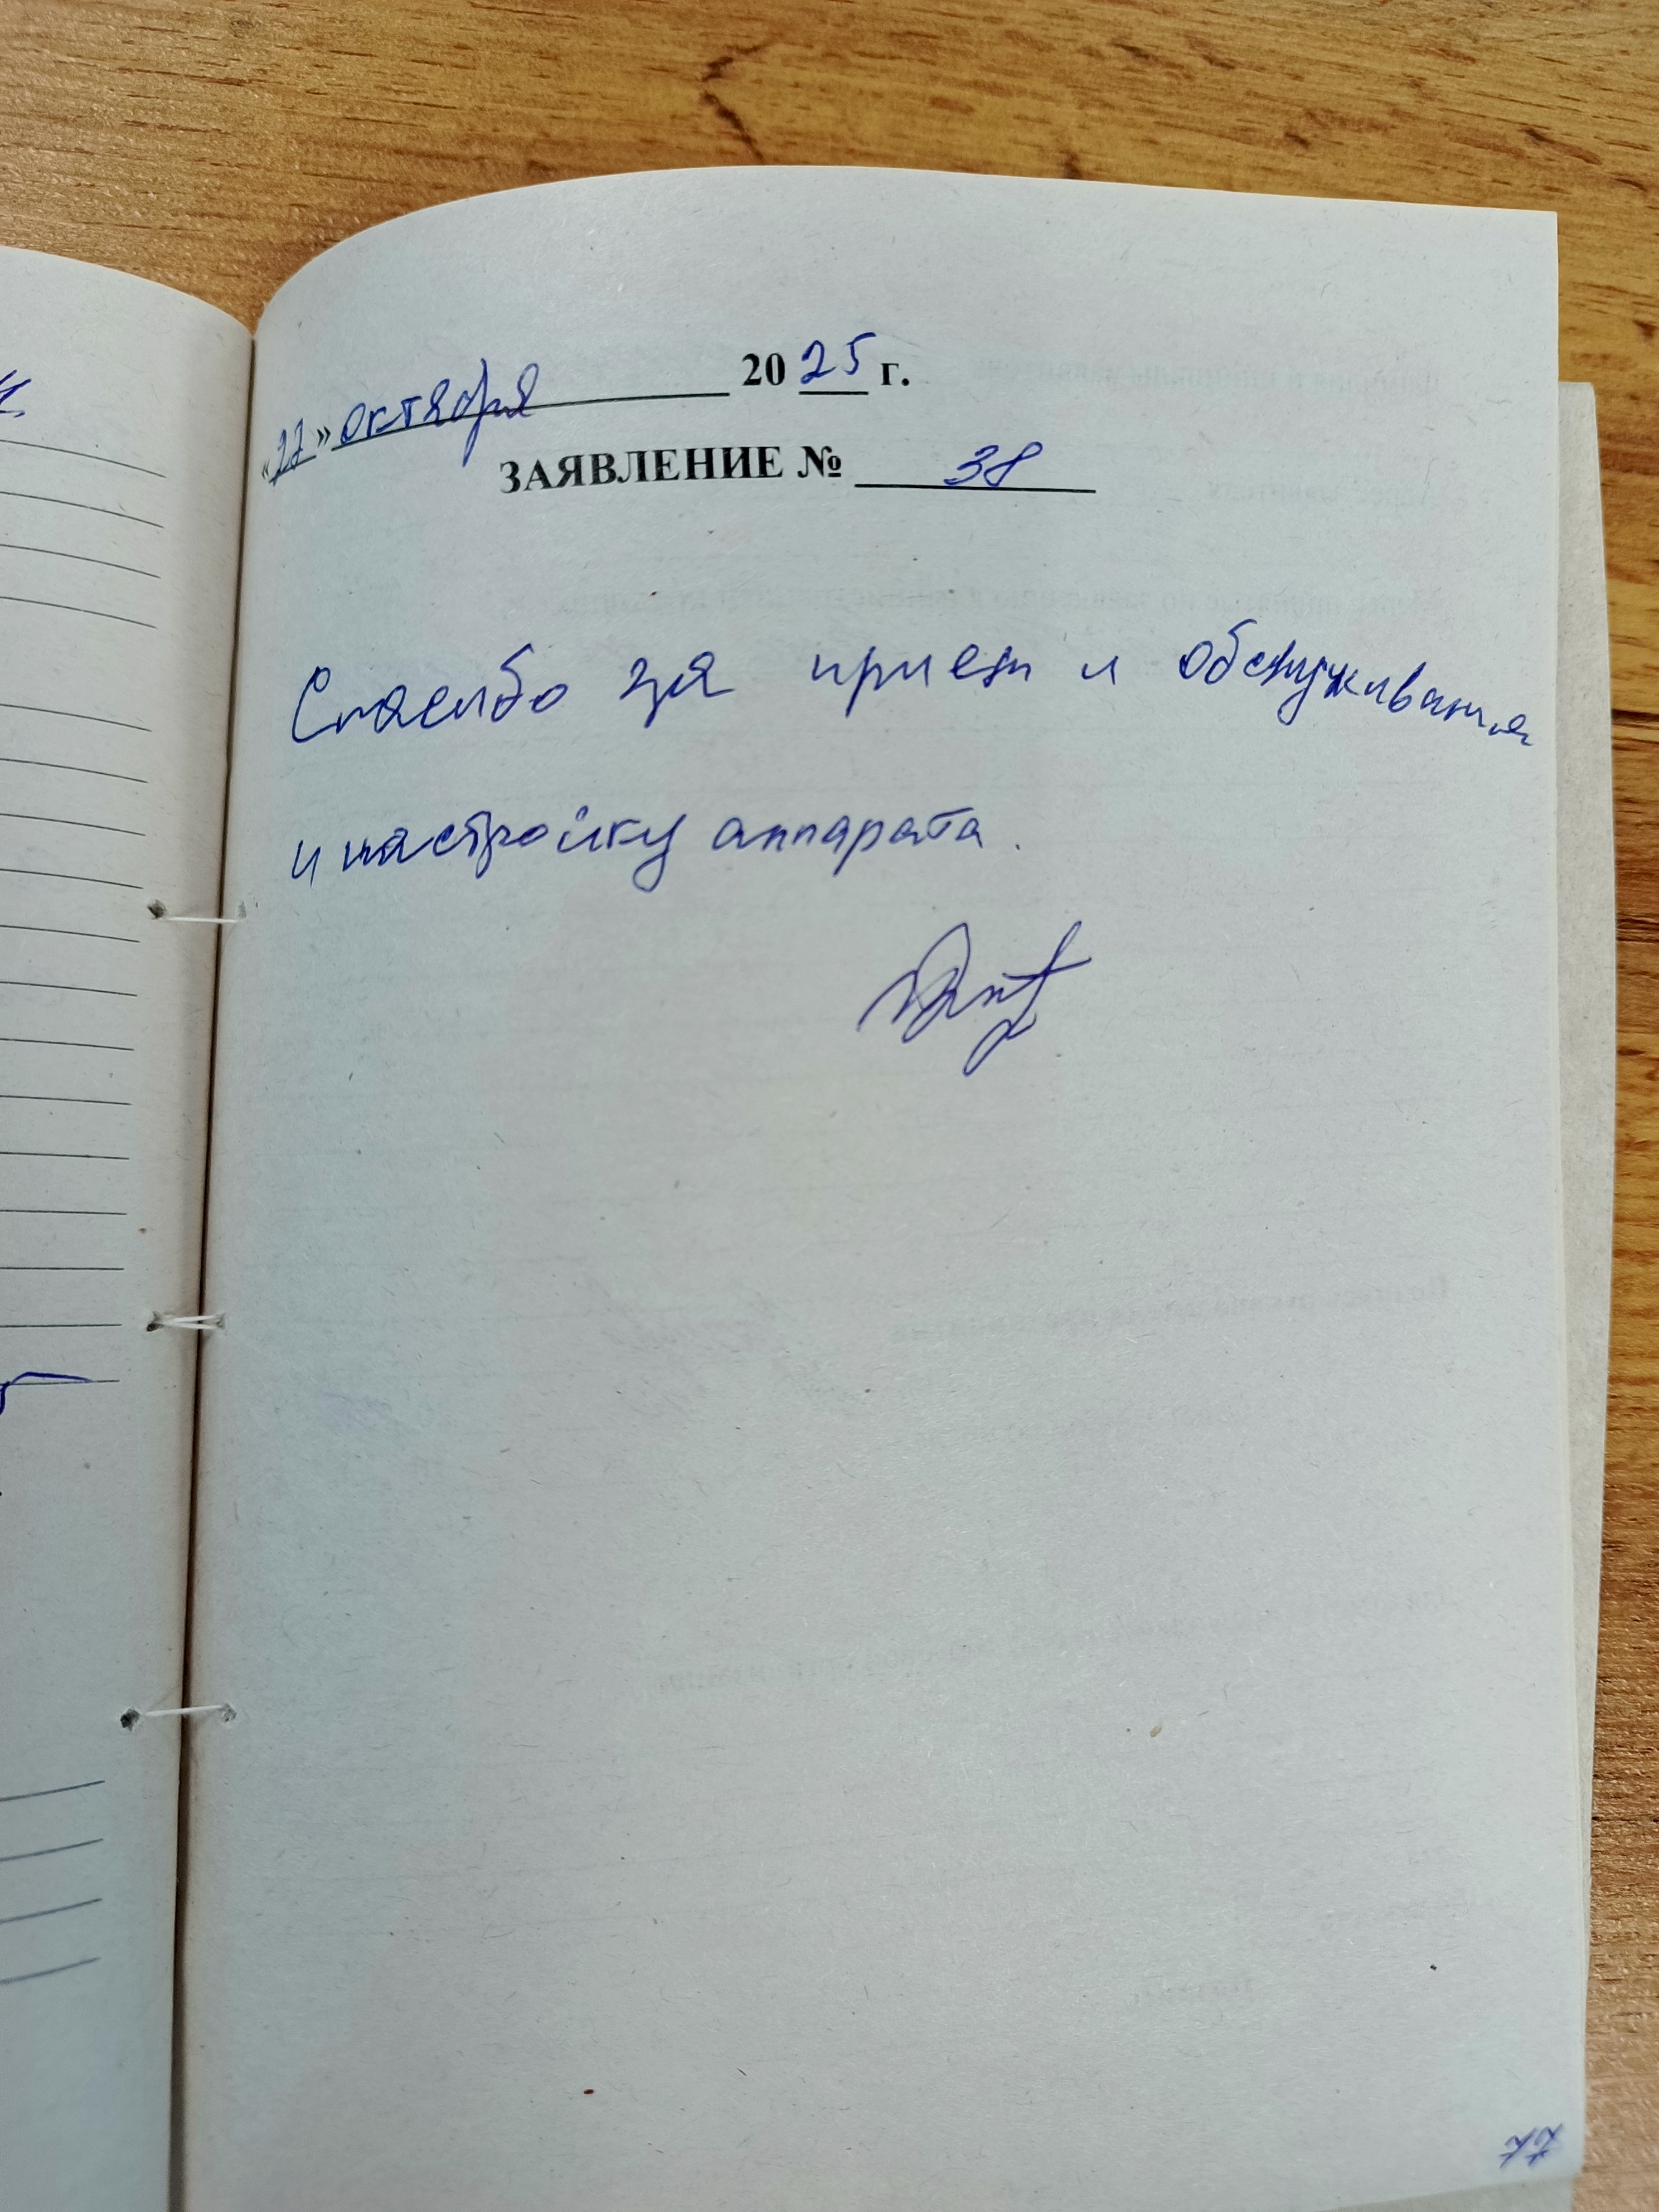 «22» октября 2025 г.
ЗАЯВЛЕНИЕ № 38
Спасибо за прием и обслуживания
и настройку аппарата.
77